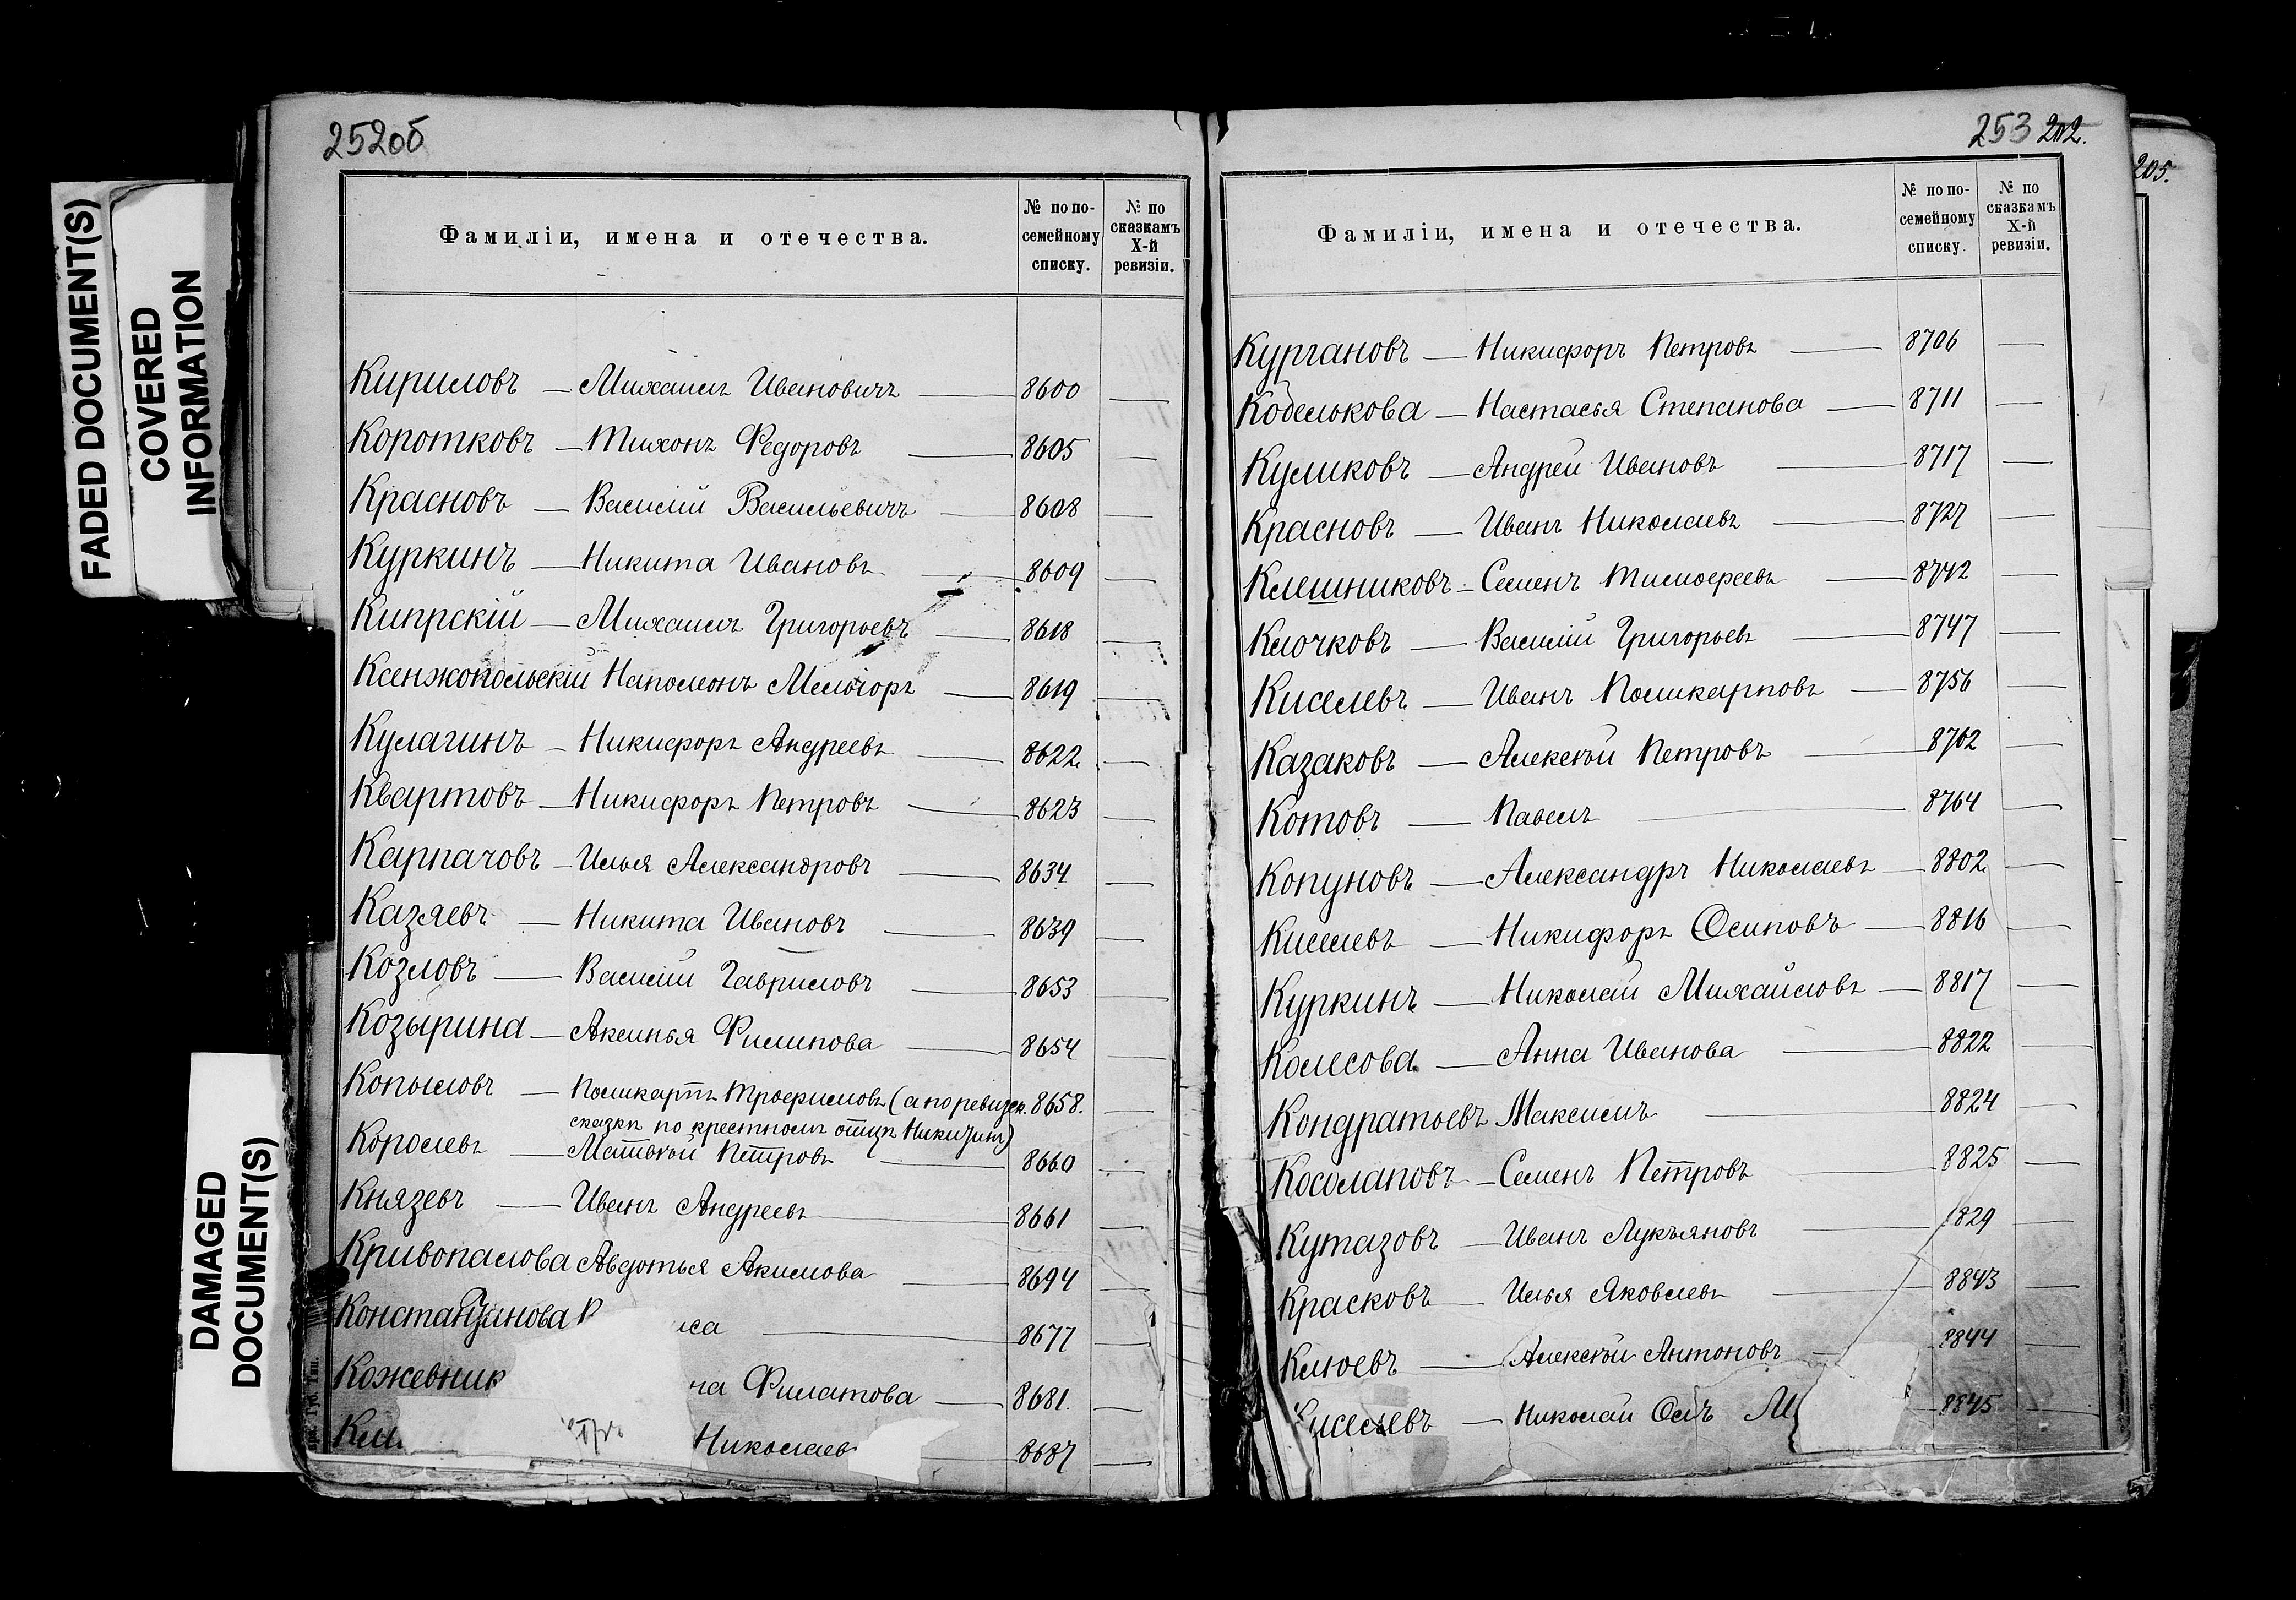 FADED DOCUMENT(S)
COVERED
INFORMATION
DAMAGED
DOCUMENT(S)
252об
Фамиліи, имена и отечества.
№ по по-
семейному
списку.
№ по
сказкамъ
X-й
ревизіи.
Кириловъ — Михаилъ Ивановичъ — 8600 —
Коротковъ — Тихонъ Федоровъ — 8605 —
Красновъ — Василій Васильевичъ — 8608 —
Куркинъ — Никита Ивановъ — 8609 —
Кипрскій — Михаилъ Григорьевъ — 8618 —
Ксенжопольскій Наполеонъ Мельхіоръ — 8619 —
Кулагинъ — Никифоръ Андреевъ — 8622 —
Квартовъ — Никифоръ Петровъ — 8623 —
Карпачовъ — Илья Александровъ — 8634 —
Казяевъ — Никита Ивановъ — 8639 —
Козловъ — Василій Гавриловъ — 8653 —
Козырина — Аксинья Филипова — 8654 —
Копыловъ — Поликарпъ Трофимовъ (а по ревизск. 8658. —
сказкѣ по крестномъ отцѣ Никитинъ)
Королевъ — Матвѣй Петровъ — 8660 —
Князевъ — Иванъ Андреевъ — 8661 —
Кривопалова Авдотья Акимова — 8694 —
Константинова — 8677 —
Кожевник на Филатова — 8681. —
Николаев — 8687 —
253 202.
205.
Фамиліи, имена и отечества.
№ по по-
семейному
списку.
№ по
сказкамъ
X-й
ревизіи.
Кургановъ — Никифоръ Петровъ — 8706 —
Кобелькова — Настасья Степанова — 8711 —
Куликовъ — Андрей Ивановъ — 8717 —
Красновъ — Иванъ Николаевъ — 8727 —
Клешниковъ — Семенъ Тимофеевъ — 8742 —
Клочковъ — Василій Григорьевъ — 8747 —
Киселевъ — Иванъ Поликарповъ — 8756 —
Казаковъ — Алексѣй Петровъ — 8762 —
Котовъ — Павелъ — 8764 —
Копуновъ — Александръ Николаевъ — 8802 —
Киселевъ — Никифоръ Осиповъ — 8816 —
Куркинъ — Николай Михайловъ — 8817 —
Колесова — Анна Иванова — 8822 —
Кондратьевъ Максимъ — 8824 —
Косолаповъ — Семенъ Петровъ — 8825 —
Кутазовъ — Иванъ Лукьяновъ — 829 —
Красковъ — Илья Яковлевъ — 8843 —
Клюевъ — Алексѣй Антоновъ — 8844 —
Киселевъ — Николай Осиъ М — 8845 —